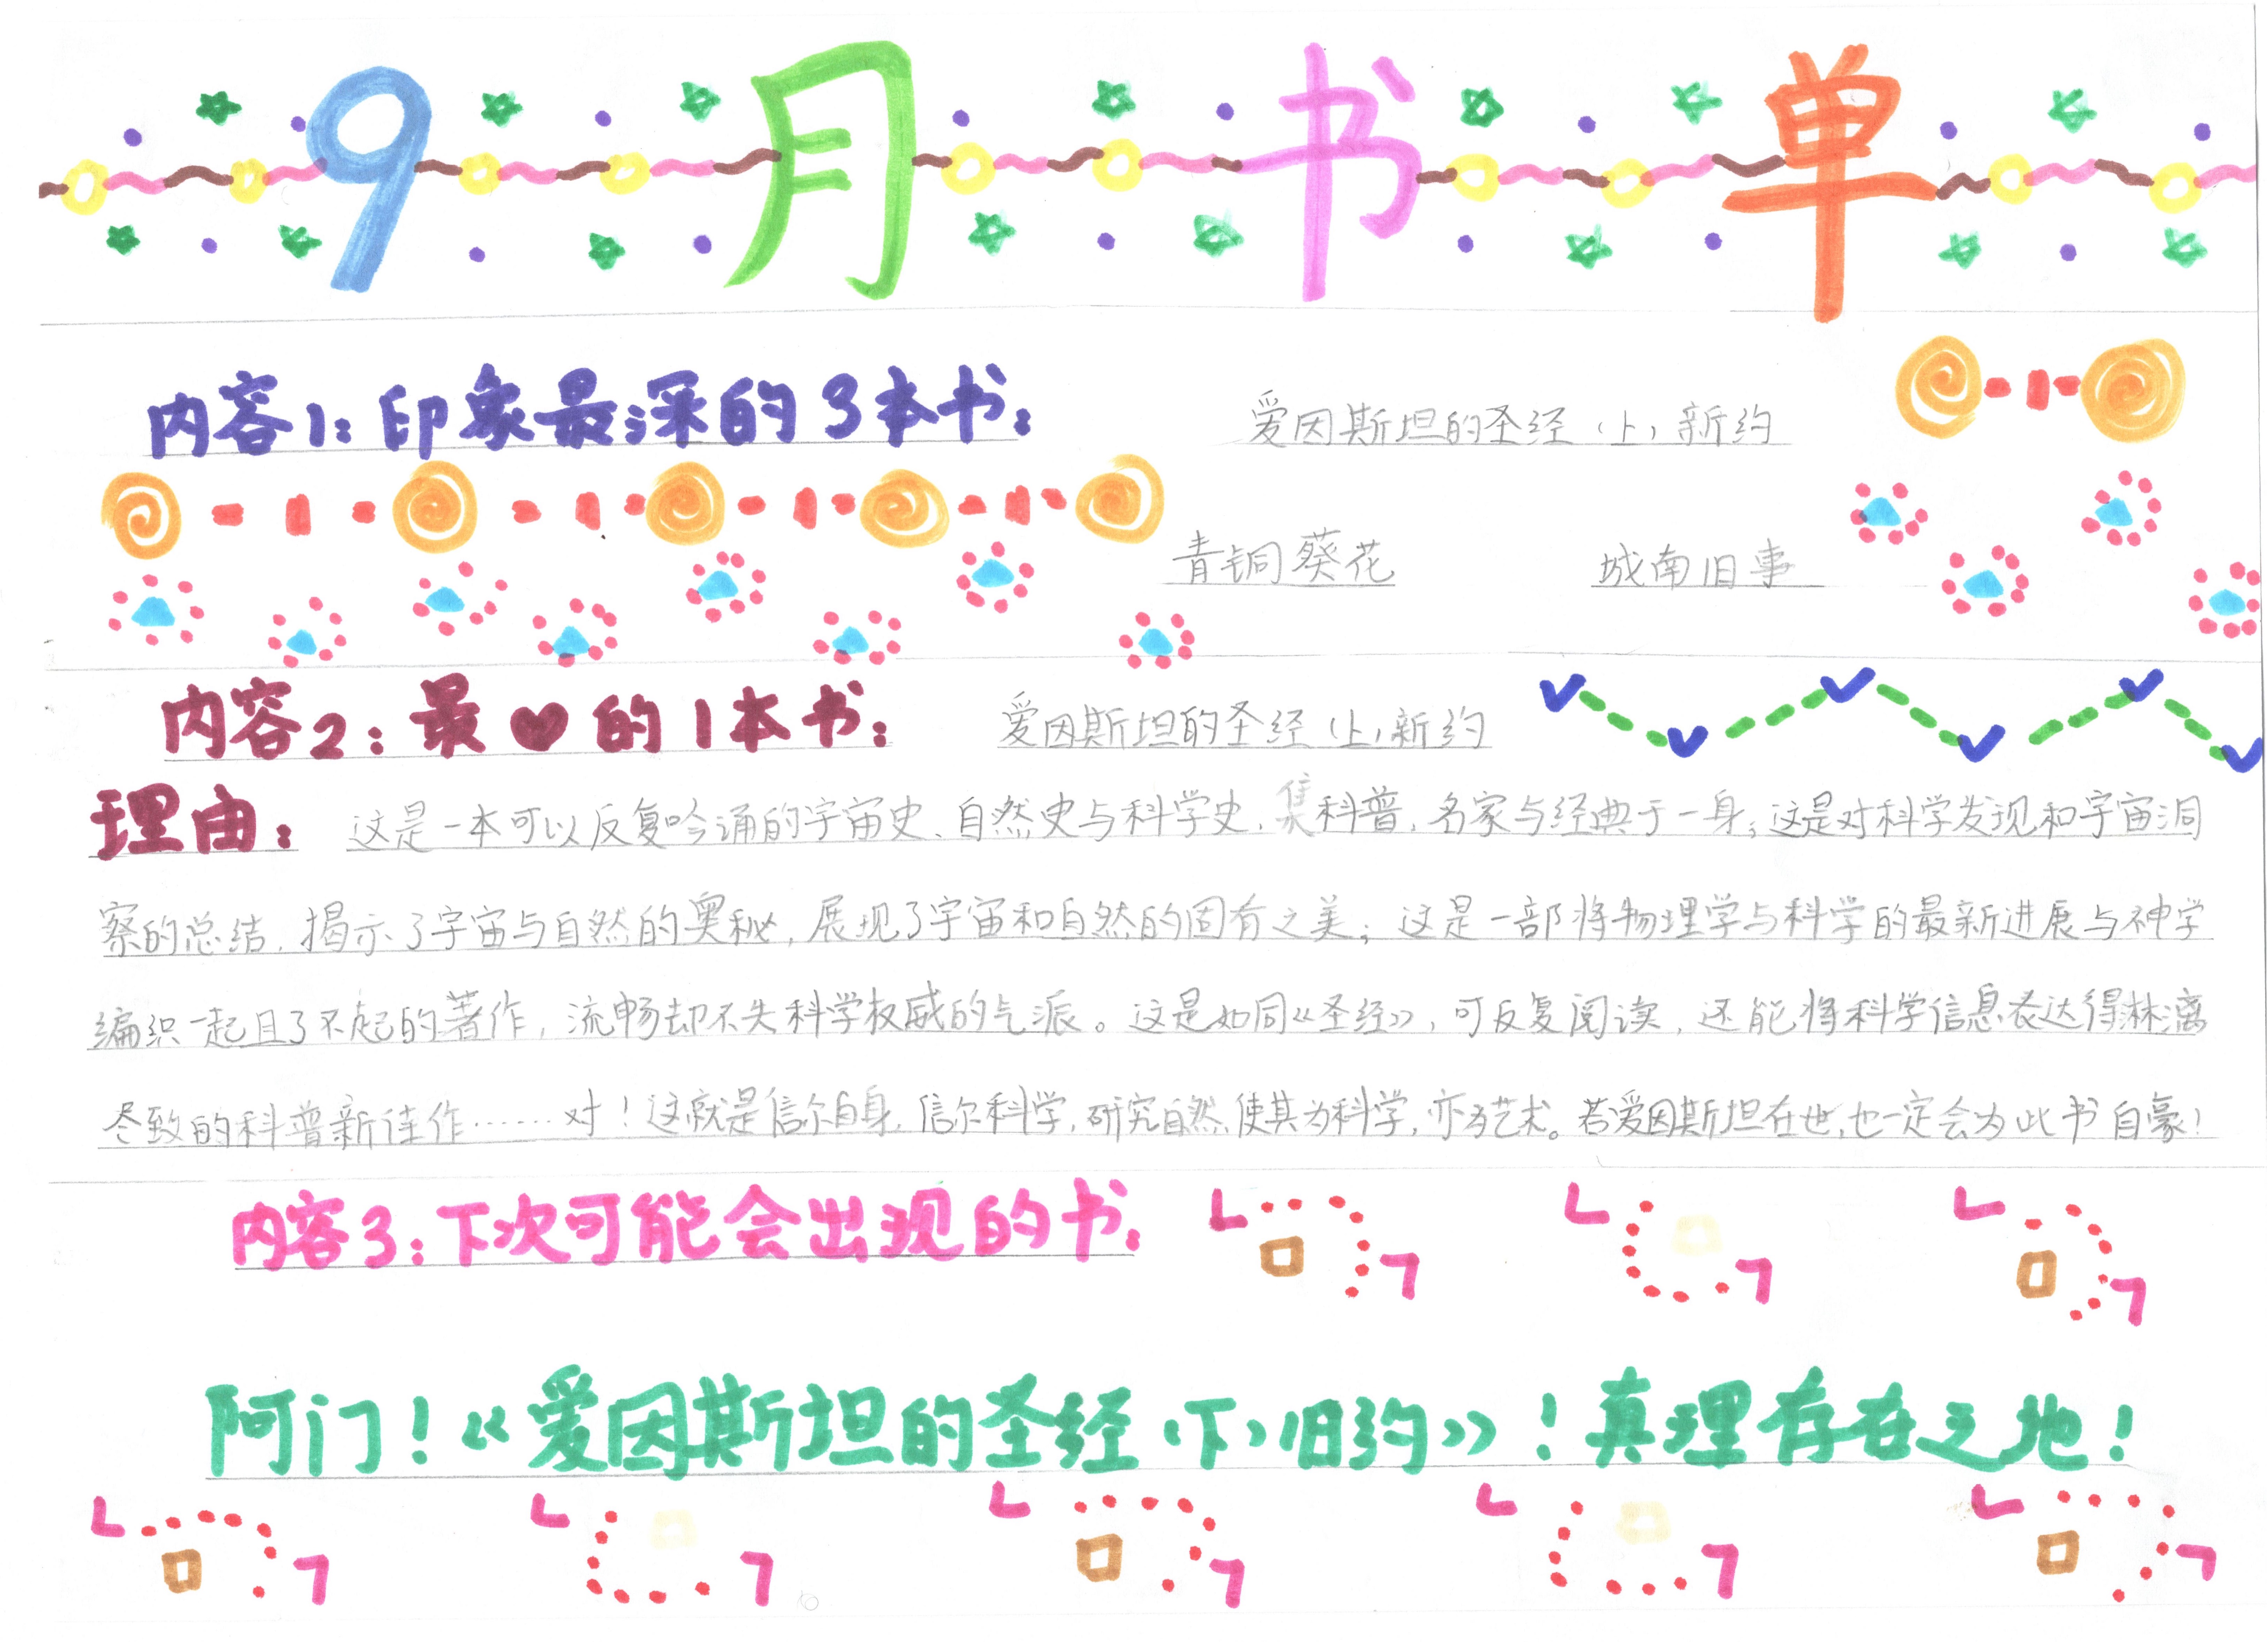 9月书单
内容1:印象最深的3本书:
爱因斯坦的圣经(上)新约
青铜葵花 城南旧事
内容2:最♥的1本书: 爱因斯坦的圣经(上)新约
理由: 这是一本可以反复吟诵的宇宙史、自然史与科学史,集科普,名家与经典于一身;这是对科学发现和宇宙洞
察的总结,揭示了宇宙与自然的奥秘,展现了宇宙和自然的固有之美;这是一部将物理学与科学的最新进展与神学
编织一起且了不起的著作,流畅却不失科学权威的气派。这是如同《圣经》,可反复阅读,还能将科学信息表达得淋漓
尽致的科普新佳作……对!这就是信尔自身,信尔科学,研究自然,使其为科学,亦为艺术。若爱因斯坦在世,也一定会为此书自豪!
内容3:下次可能会出现的书:
阿门!《爱因斯坦的圣经(下)旧约》!真理存在之地!